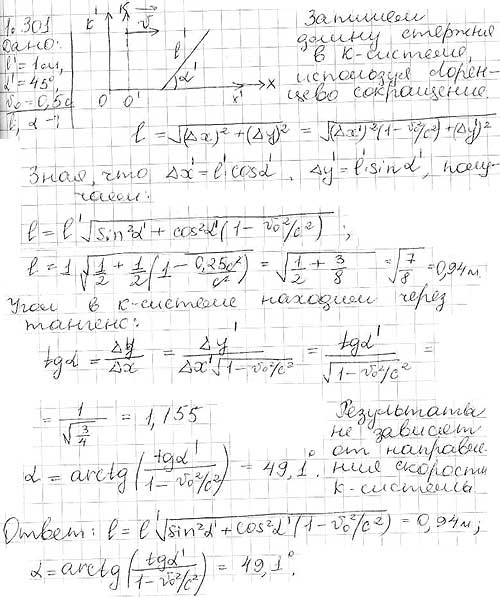 1.301
Дано:
l' = 1 м,
α' = 45°,
v₀ = 0,5c
l, α - ?
K' K v
l α'
O O' x' x
Запишем
длину стержня
в К-системе,
используя Лорен-
цево сокращение
l = √((Δx)² + (Δy)²) = √((Δx')²(1 - v₀²/c²) + (Δy')²
Зная, что Δx' = l' cosα', Δy' = l' sinα', полу-
чаем:
l = l'√(sin²α' + cos²α'(1 - v₀²/c²)) ;
l = 1 √(1/2 + 1/2(1 - 0,25c²/c²)) = √(1/2 + 3/8) = √(7/8) = 0,94 м.
Угол в К-системе находим через
тангенс:
tgα = Δy/Δx = Δy'/(Δx'√(1 - v₀²/c²)) = tgα'/√(1 - v₀²/c²) =
= 1/√(3/4) = 1,155
α = arctg(tgα'/(1 - v₀²/c²)) = 49,1°.
Результаты
не зависят
от направле-
ния скорости
К-системы
Ответ: l = l'√(sin²α' + cos²α'(1 - v₀²/c²)) = 0,94 м;
α = arctg(tgα'/(1 - v₀²/c²)) = 49,1°.